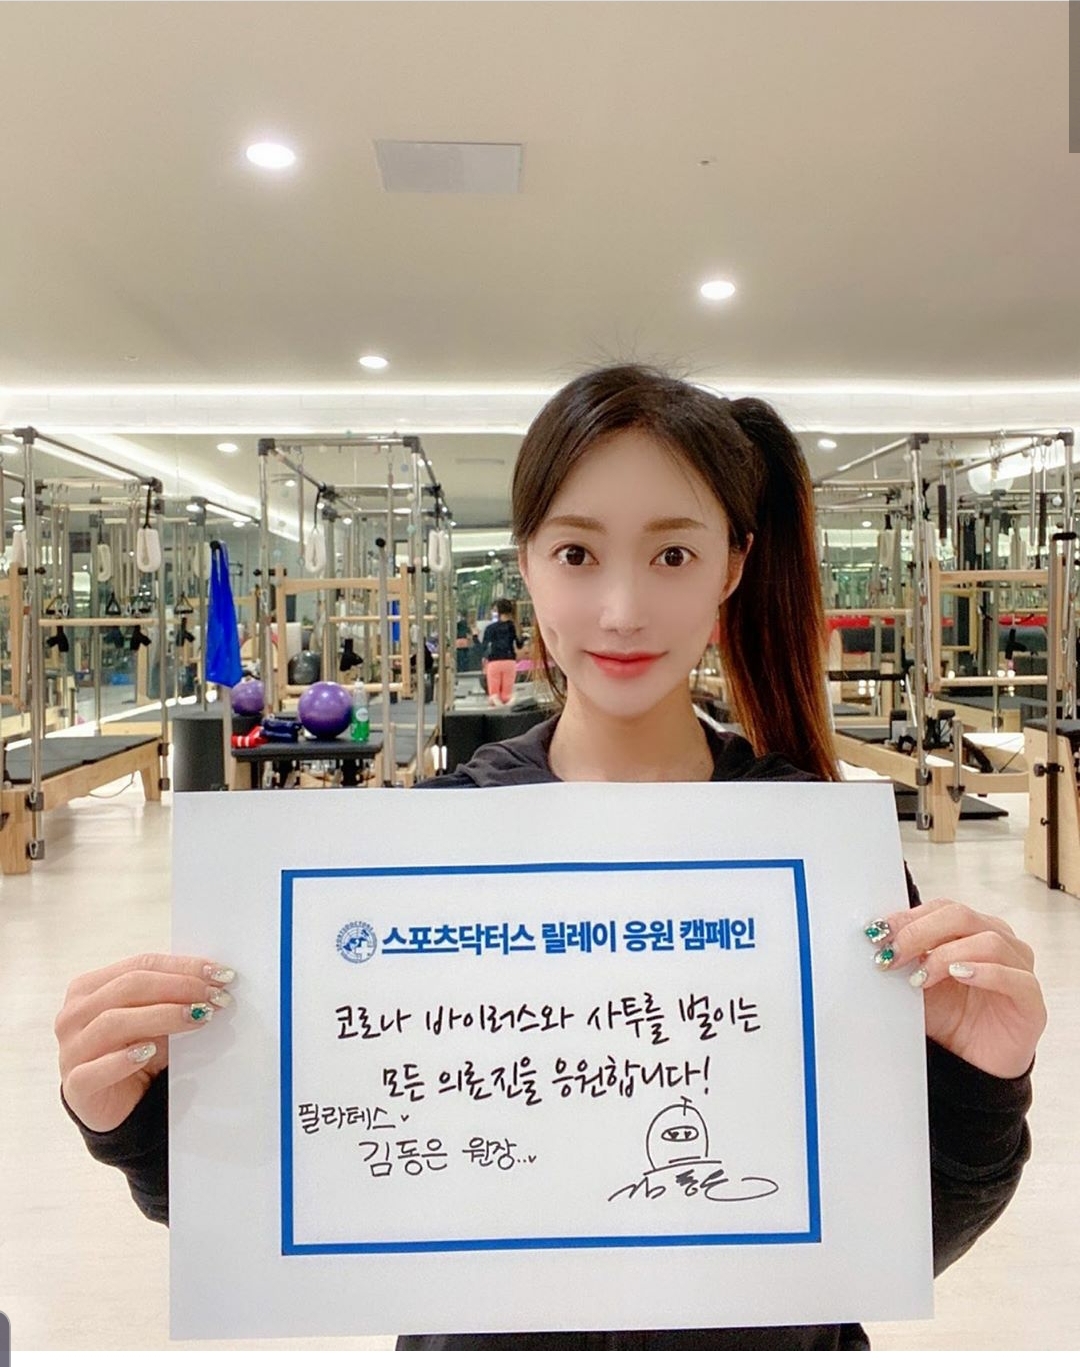 스포츠닥터스 릴레이 응원 캠페인
코로나 바이러스와 사투를 벌이는
모든 의료진을 응원합니다!
필라테스
김동은 원장...